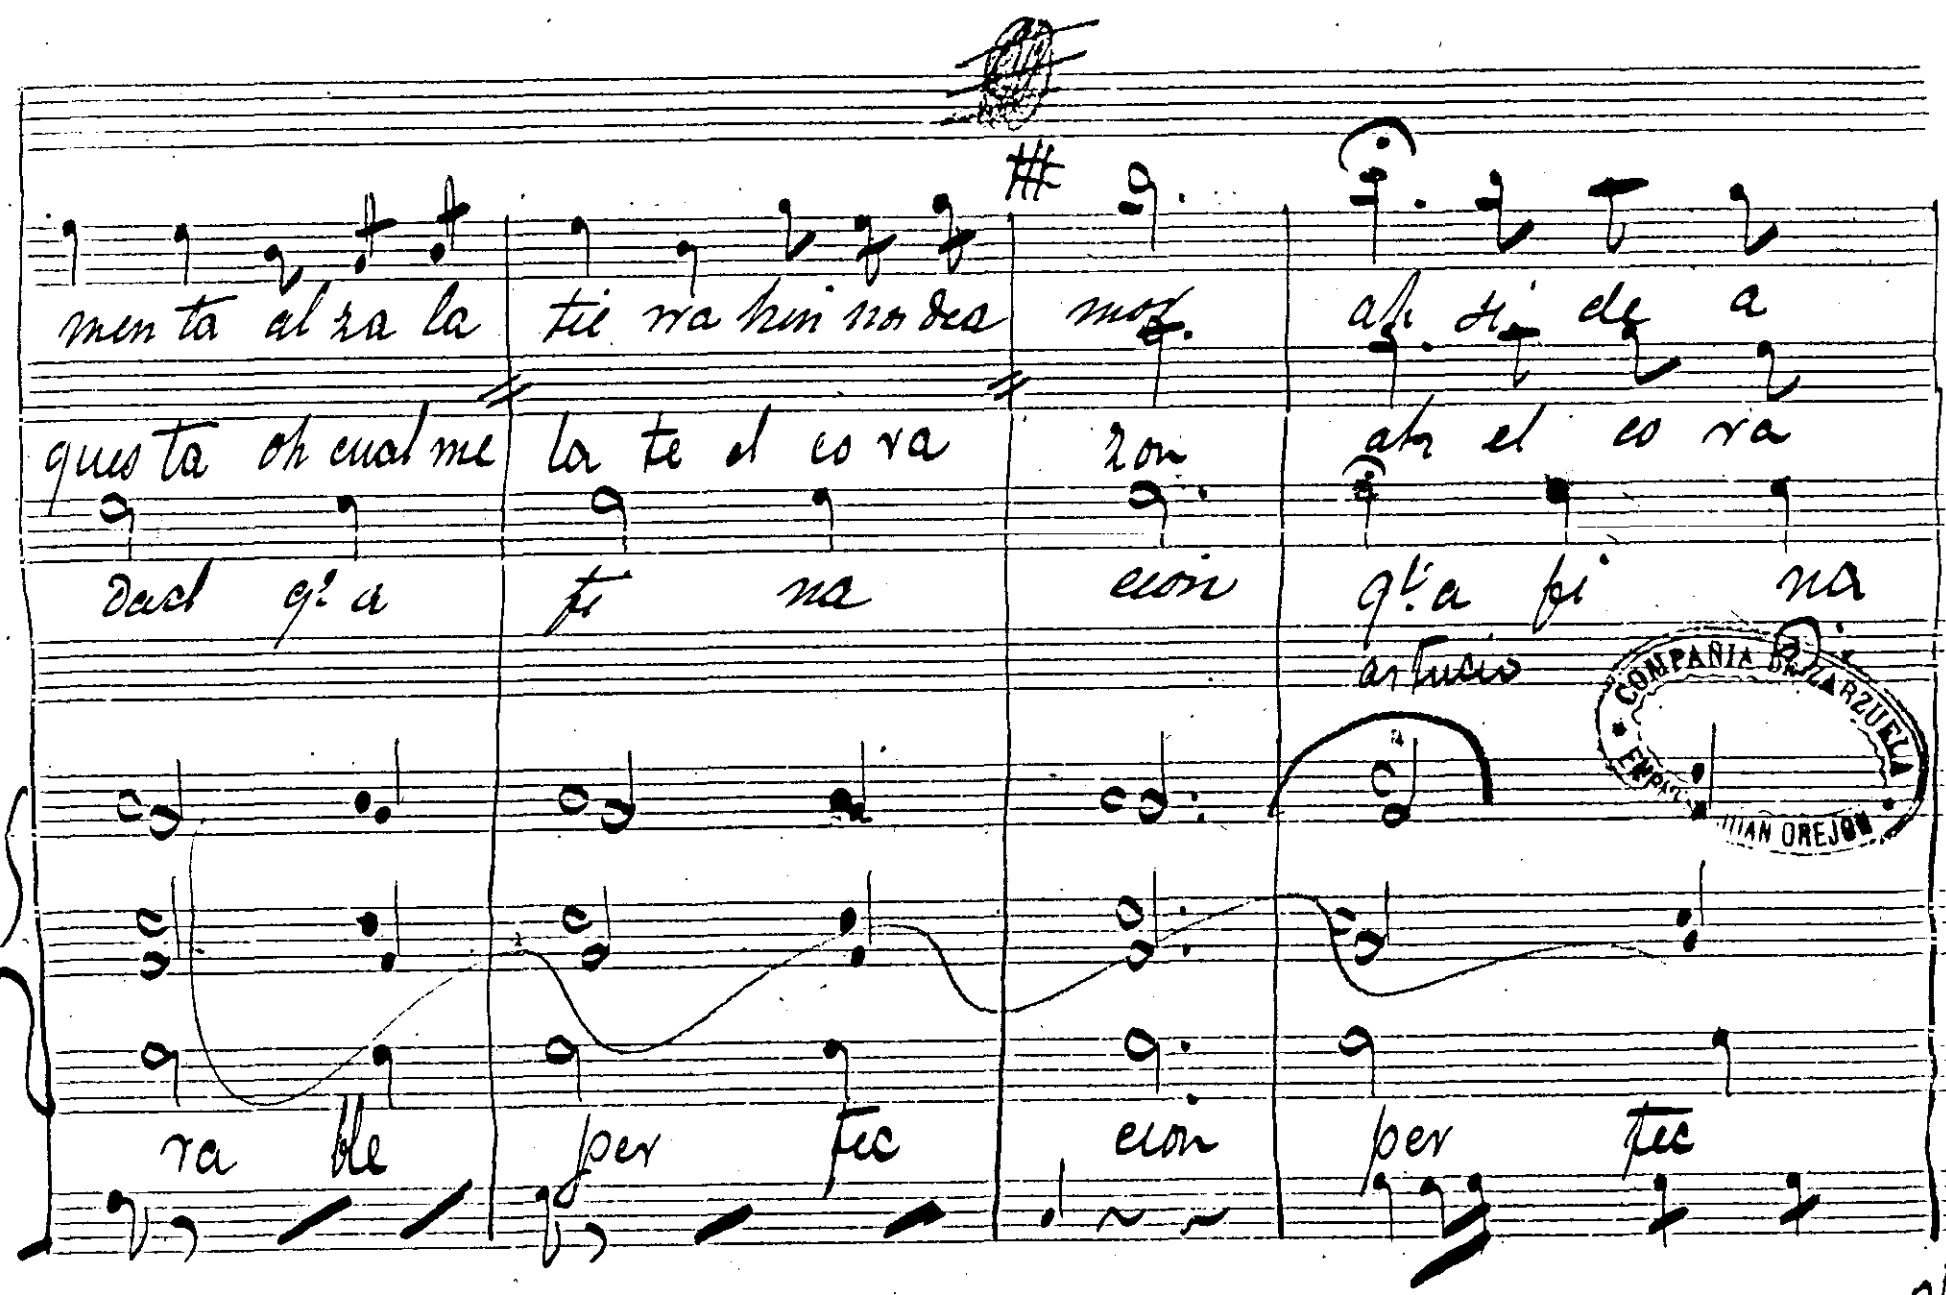 men ta al za la tie rra him nos dea mor ah si de a
ques ta oh cual me la te el co ra zon ah el co ra
dad q.e a fi na cion q.e a fi na
artucio
COMPAÑIA DE ZARZUELA
JUAN OREJON
ra ble per fec cion per fec